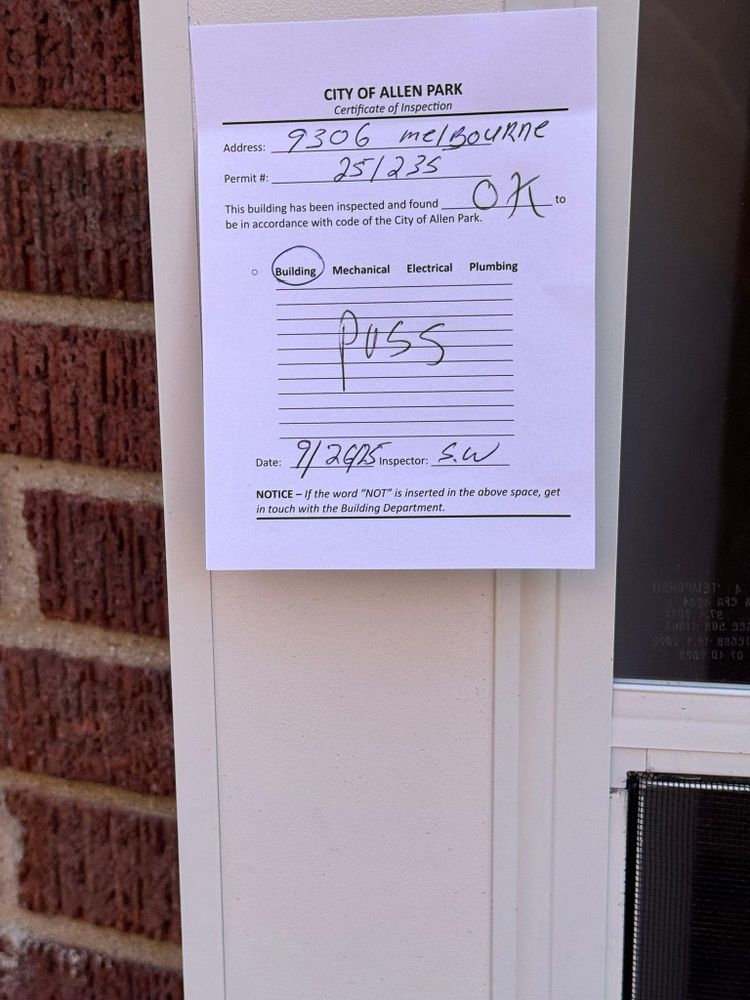 CITY OF ALLEN PARK
Certificate of Inspection
Address: 9306 melBOURNE
Permit #: 251235
This building has been inspected and found OK to
be in accordance with code of the City of Allen Park.
Building Mechanical Electrical Plumbing
PASS
Date: 9/26/25 Inspector: S.W
NOTICE – If the word "NOT" is inserted in the above space, get
in touch with the Building Department.
TEMPERED